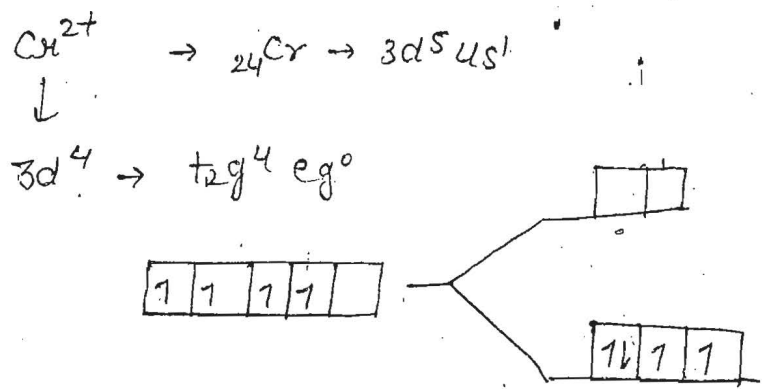 Cr²⁺ → ₂₄Cr → 3d⁵ 4s¹
↓
3d⁴ → t₂g⁴ eg⁰
1 1 1 1
1↓ 1 1